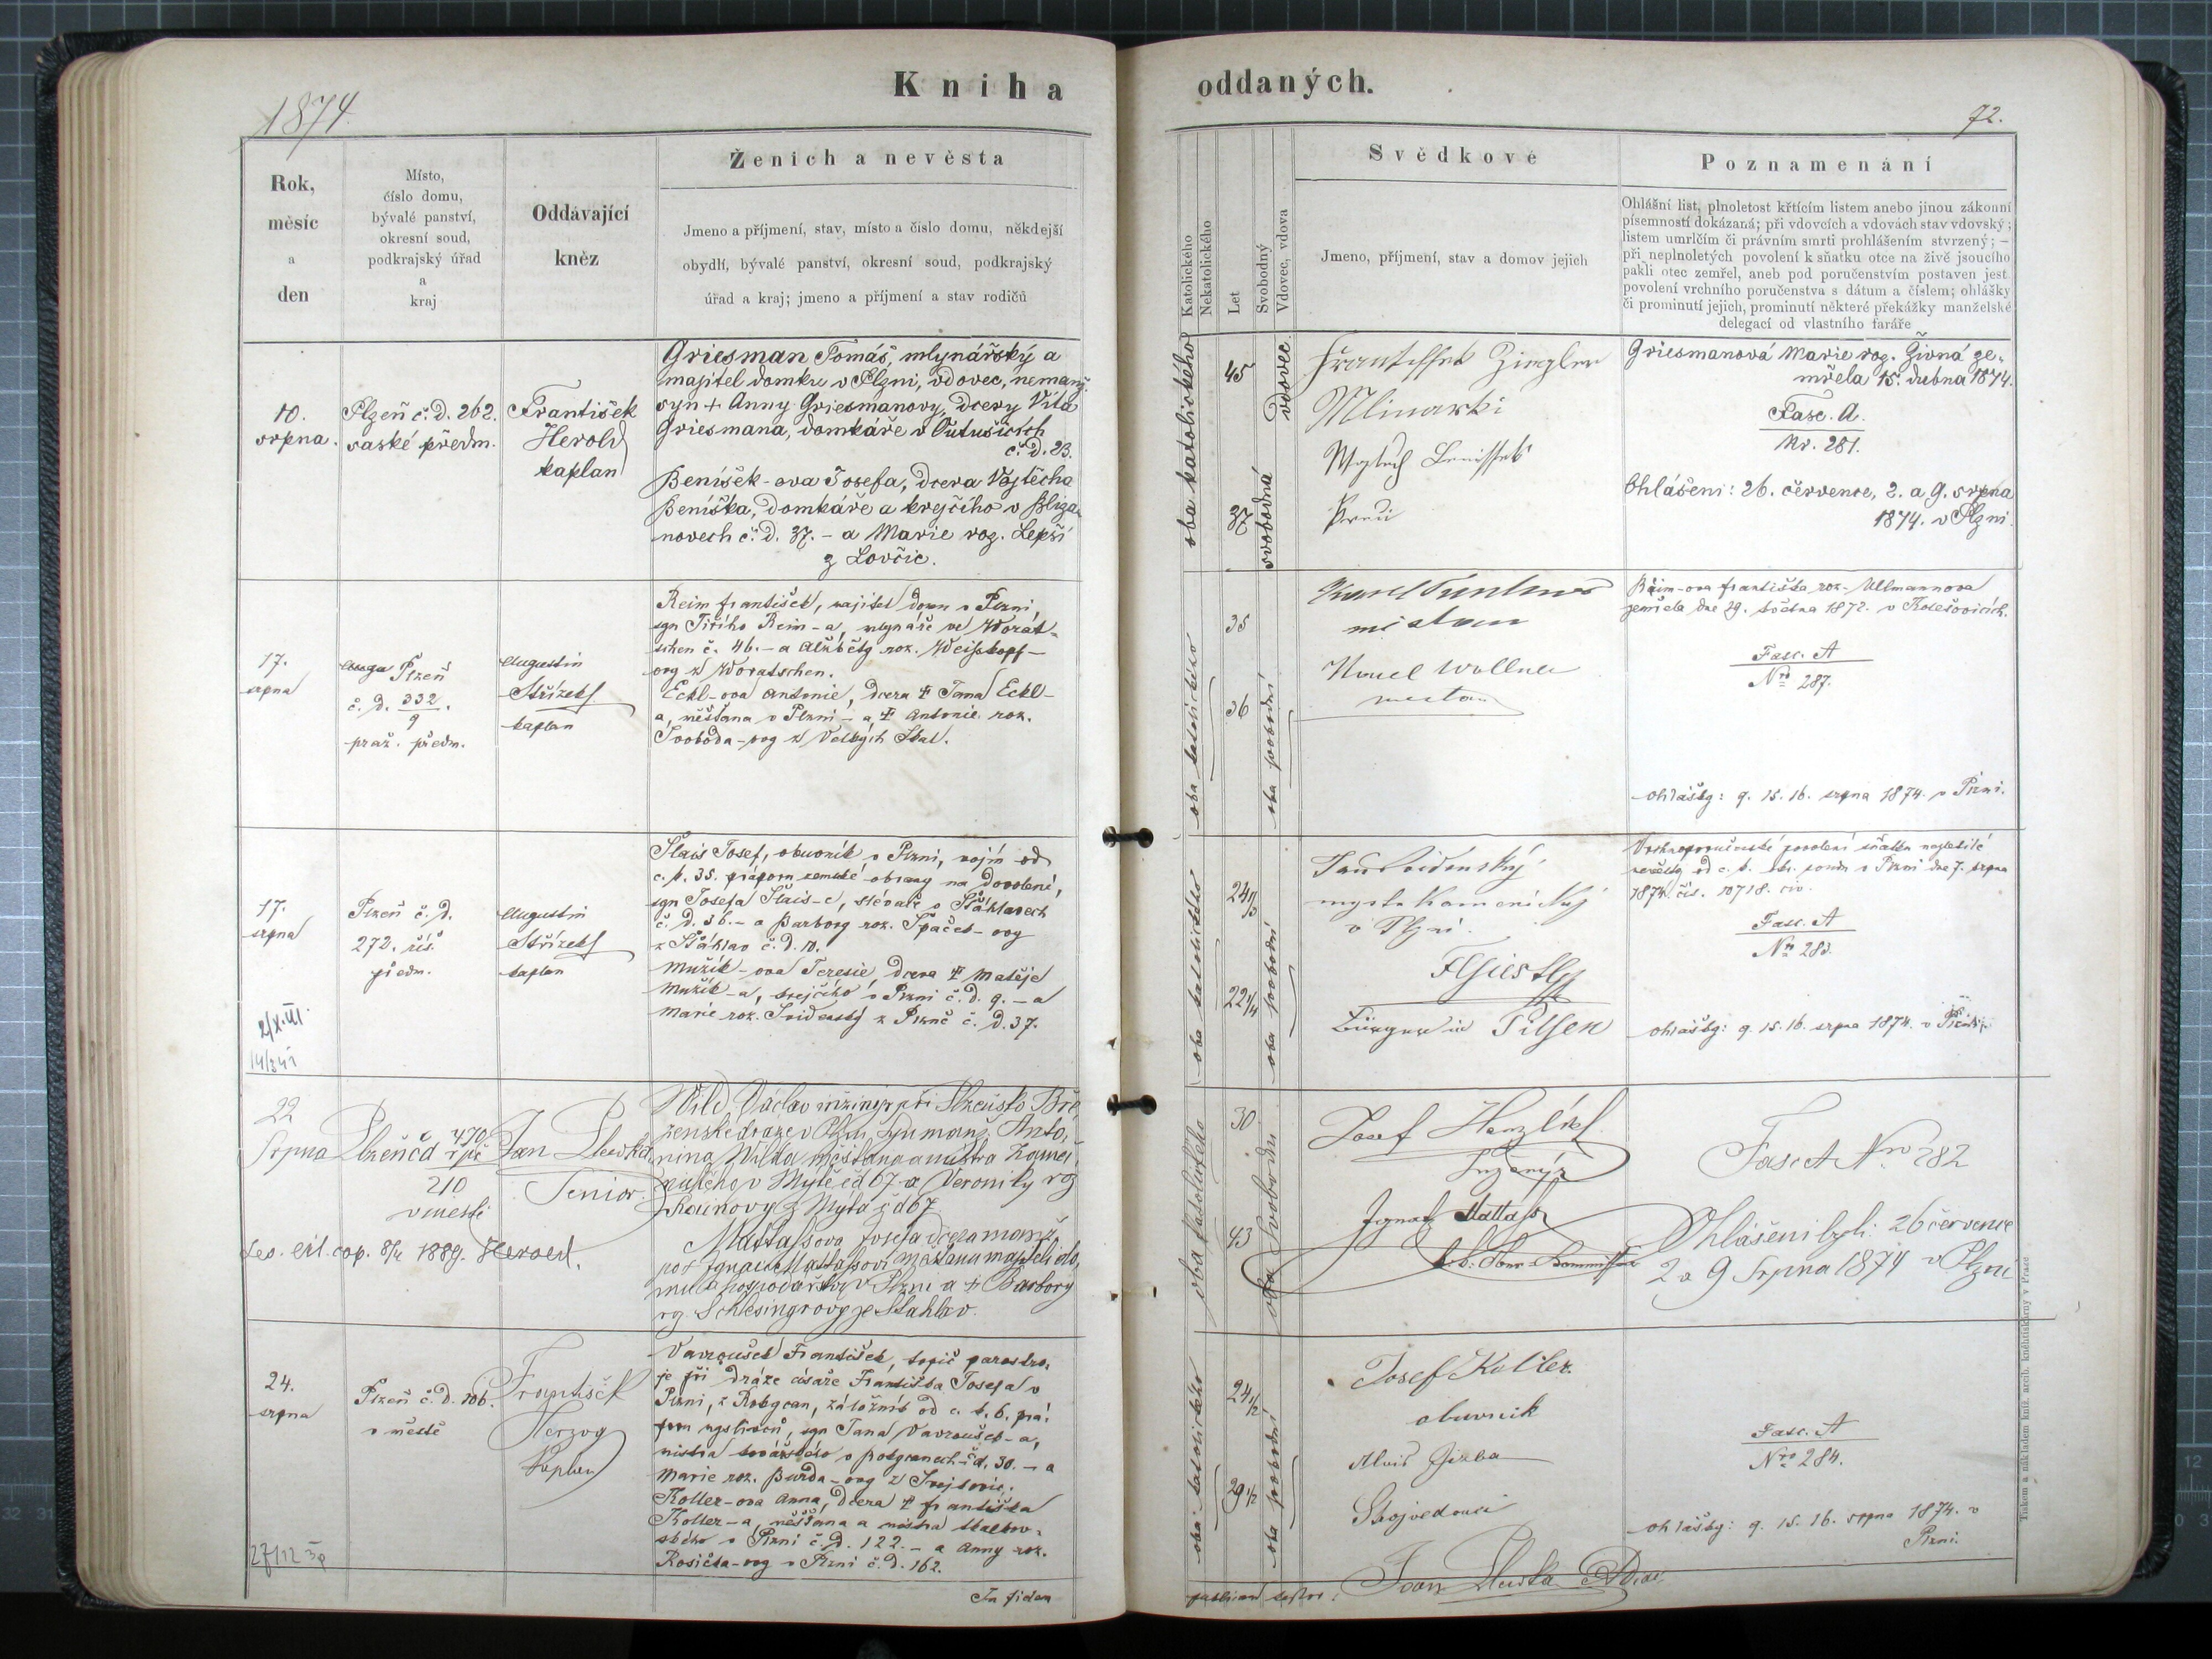 Kniha
oddaných.
1874
72.
Rok,
měsíc
a
den
Místo,
číslo domu,
bývalé panství,
okresní soud,
podkrajský úřad
a
kraj
Oddávající
kněz
Ženich a nevěsta
Jmeno a příjmení, stav, místo a číslo domu, někdejší
obydlí, bývalé panství, okresní soud, podkrajský
úřad a kraj; jmeno a příjmení a stav rodičů
Katolického
Nekatolického
Let
Svobodný
Vdovec, vdova
Svědkové
Jmeno, příjmení, stav a domov jejich
Poznamenání
Ohlášní list, plnoletost křtícím listem anebo jinou zákonní
písemností dokázaná; při vdovcích a vdovách stav vdovský;
listem umrlčím či právním smrti prohlášením stvrzený; —
při neplnoletých povolení k sňatku otce na živě jsoucího
pakli otec zemřel, aneb pod poručenstvím postaven jest
povolení vrchního poručenstva s dátum a číslem; ohlášky
či prominutí jejich, prominutí některé překážky manželské
delegací od vlastního faráře
10.
srpna.
Plzeň č. d. 262.
saské předm.
František
Herold
kaplan
Griesman Tomáš, mlynářský a
majitel domku v Plzni, vdovec, nemanž.
syn + Anny Griesmanovy, dcery Víta
Griesmana, domkáře v Outušicích
č. d. 23.
Beníšek-ova Josefa, dcera Vojtěcha
Beníška, domkáře a krejčího v Bliza-
novech č. d. 37. - a Marie roz. Lepší
z Lovčic.
oba katolického
45
37
vdovec
svobodná
Frantissek Ziegler
Mlinarki
Griesmanová Marie roz. Živná ze-
mřela 15. dubna 1874.
Fasc. A.
Nr. 281.
Ohlášeni: 26. července, 2. a 9. srpna
1874. v Plzni.
17.
srpna
Plzeň
č. d. 332/9.
praž. předm.
Augustin
Střízek
kaplan
Reim František, majitel domu v Plzni,
syn Jiřího Reim-a, mlynáře ve Worat-
schen č. 46. - a Alžběty roz. Weisskopf-
ovy z Woratschen.
Eckl-ova Antonie, dcera + Jana Eckl-
a, měšťana v Plzni - a + Antonie roz.
Svoboda-ovy z Velkých Skal.
oba katolického
35
36
mistan
Karel Wollner
mestan
Reim-ova Františka roz. Ullmannova
zemřela dne 29. 1872. v
Fasc. A
Nro 287.
Ohlášky: 9. 15. 16. srpna 1874. v Plzni.
17.
srpna
Plzeň č. d.
272. říš.
předm.
Augustin
Střízek
kaplan
Šlais Josef, obuvník v Plzni, vojín od
c. k. 35. praporu zemské obrany na dovolené,
syn Josefa Šlais-e, slévače v Šťáhlavech
č. d. 36. - a Barbory roz. Špaček-ovy
z Šťáhlav č. d. 10.
Mužík-ova Terezie, dcera + Matěje
Mužík-a, krejčího v Plzni č. d. 9. - a
Marie roz. z Plzně č. d. 37.
14/341
oba katolického
24 1/3
22 1/4
v Plzni.
Bürger in Pilsen
Vrchnoporučenské povolení sňatku nezletilé
nevěsty od c. k. okr. soudu v Plzni dne 7. srpna
1874 čís. 10718. civ.
Fasc. A
Nro 283.
Ohlášky: 9. 15. 16. srpna 1874. v Plzni.
22
Srpna
Plzeň čd 470
210
v městě
Jan Šlerka
Senior
Wild Václav inžinýr při Plzeňsko Bře-
zenské dráze v Plzni, syn manž. Anto-
nina Wilda, měšťana a mistra
v Mýtě čd 67 a Veroniky rz
z Mýta čd 67
Mattassova Josefa dcera manž.
měšťana majitele do-
mu a hospodářství v Plzni a + Barbory
rz. Schlesingrovy ze Šťáhlav.
1889. Herold.
30
43
Josef Hanzlík
Inženýr
Ignatz Mattass
Fasc A Nro 282
Ohlášeni byli: 26 července
2 a 9 Srpna 1874 v Plzni
24.
srpna
Plzeň č. d. 106.
v městě
František
Herzog
Kaplan
Vavroušek František, topič parostro-
je při dráze císaře Františka Josefa v
Plzni, z Rokycan, záložník od c. k. 6. prá-
poru myslivců, syn Jana Vavroušek-a,
mistra kovářského v č. d. 30. - a
Marie roz. Burda-ovy z
Koller-ova Anna, dcera + Františka
Koller-a, měšťana a mistra tkalcov-
ského v Plzni č. d. 122. - a Anny roz.
Rosička-ovy v Plzni č. d. 162.
oba katolického
24 1/2
29 1/2
Josef Koller
obuvník
Alois Jirba
Strojvedoucí
Fasc. A
Nro 284.
Ohlášky: 9. 15. 16. srpna 1874. v
Plzni.
In fidem
Tiskem a nákladem kníž. arcib. kněhtiskárny v Praze